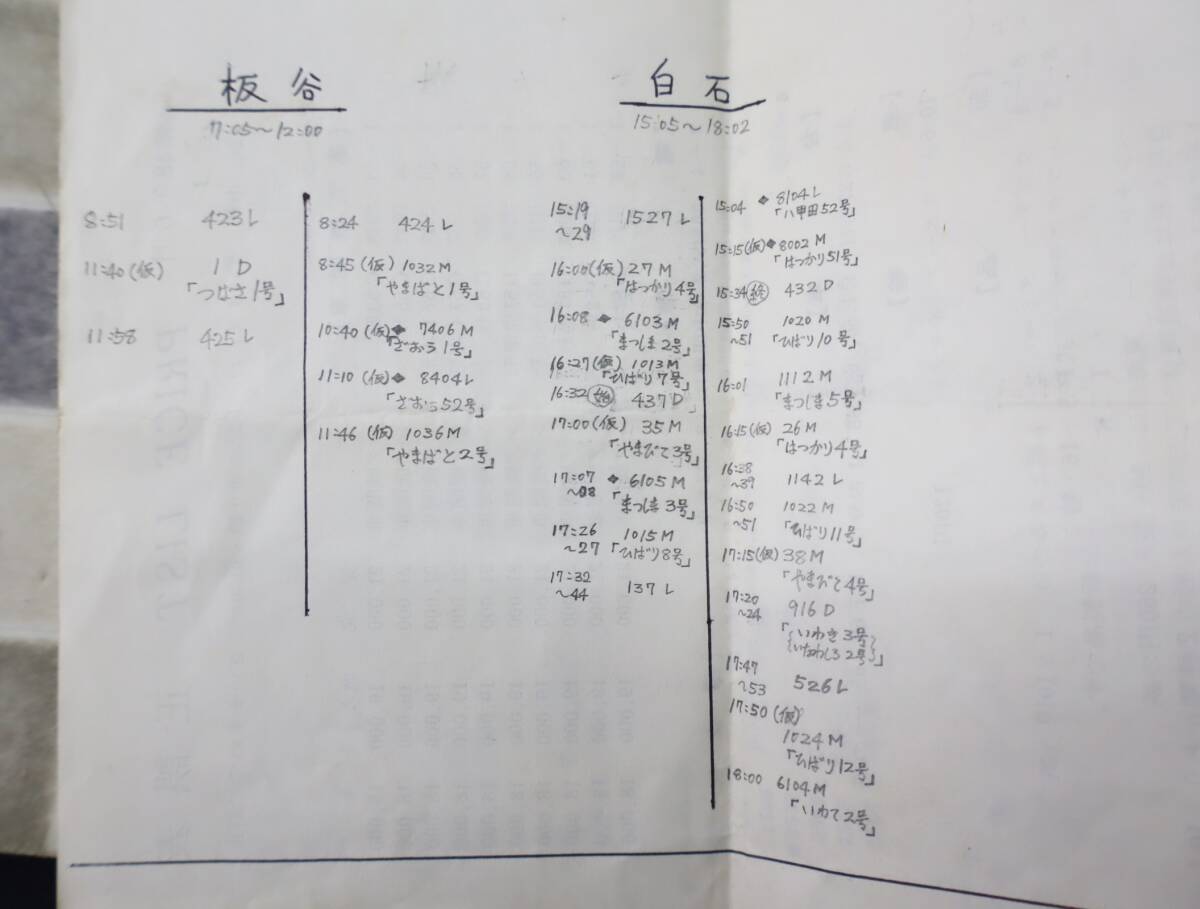 板谷
7:05～12:00
8:51 423L
11:40(仮) 1D
「つばさ1号」
11:58 425L
8:24 424L
8:45(仮) 1032M
「やまばと1号」
10:40(仮)◆ 7406M
「ざおう1号」
11:10(仮)◆ 8404L
「ざおう52号」
11:46(仮) 1036M
「やまばと2号」
白石
15:05～18:02
15:19
～29 1527L
16:00(仮) 27M
「はつかり4号」
16:08 ◆ 6103M
「まつしま2号」
16:27(仮) 1013M
「ひばり7号」
16:32 ㊗ 437D
17:00(仮) 35M
「やまびこ3号」
17:07
～08 ◆ 6105M
「まつしま3号」
17:26
～27 1015M
「ひばり8号」
17:32
～44 137L
15:04 ◆ 8104L
「八甲田52号」
15:15(仮)◆ 8002M
「はつかり51号」
15:34 (終) 432D
15:50
～51 1020M
「ひばり10号」
16:01 1112M
「まつしま5号」
16:15(仮) 26M
「はつかり4号」
16:38
～39 1142L
16:50
～51 1022M
「ひばり11号」
17:15(仮) 38M
「やまびこ4号」
17:20
～24 916D
「{いわき3号}
{いなわしろ2号}」
17:47
～53 526L
17:50(仮)
1024M
「ひばり12号」
18:00 6104M
「いわて2号」